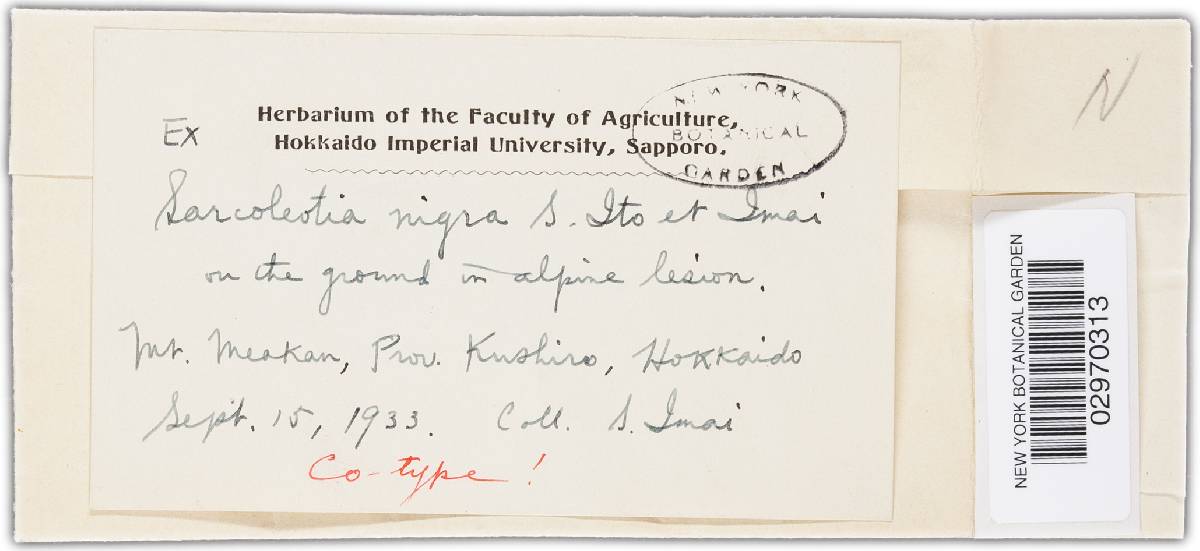 Ex
Herbarium of the Faculty of Agriculture,
Hokkaido Imperial University, Sapporo.
NEW YORK
BOTANICAL
GARDEN
Sarcoleotia nigra S. Ito et Imai
on the ground in alpine lesion.
Mt. Meakan, Prov. Kushiro, Hokkaido
Sept. 15, 1933. Coll. S. Imai
Co-type!
N
NEW YORK BOTANICAL GARDEN
02970313